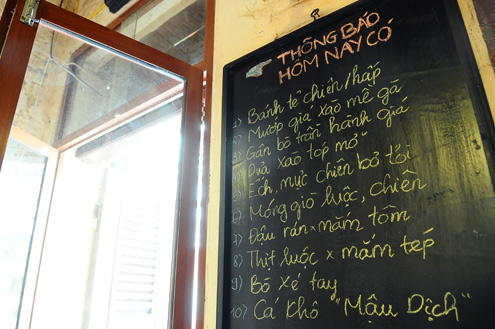 THÔNG BÁO
HÔM NAY CÓ
1) Bánh tẻ chiên/hấp
2) Mướp giá xào mề gà
3) Gân bò trần hành giá
4) Dưa xào tóp mỡ
5) Ếch, mực chiên bơ tỏi
6) Móng giò luộc, chiên
7) Đậu rán x mắm tôm
8) Thịt luộc x mắm tép
9) Bò xé tay
10) Cá khô "Mậu Dịch"